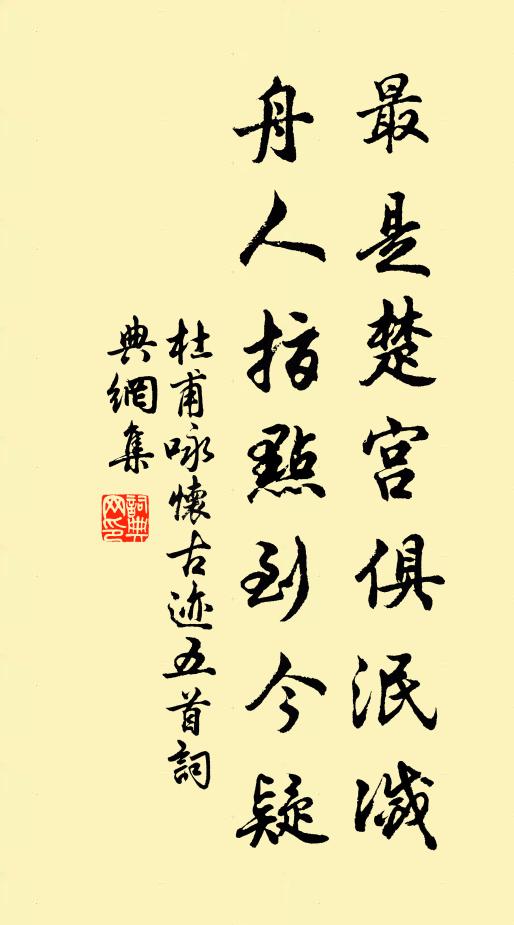 最是楚宮俱泯滅
舟人指點到今疑
杜甫咏懷古迹五首詞
典網集
詞典
网印